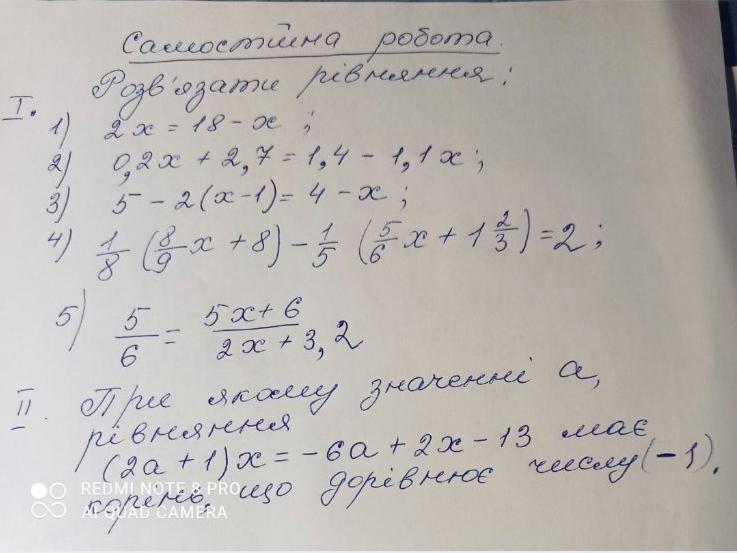 Самостійна робота.
Розв'язати рівняння:
I. 1) 2x = 18 - x ;
2) 0,2x + 2,7 = 1,4 - 1,1x ;
3) 5 - 2(x-1) = 4 - x ;
4) 1/8 (8/9 x + 8) - 1/5 (5/6 x + 1 2/3) = 2 ;
5) 5/6 = (5x + 6)/(2x + 3,2)
II. При якому значенні a,
рівняння
(2a + 1)x = -6a + 2x - 13 має
корень, що дорівнює числу (-1).
REDMI NOTE 8 PRO
AI QUAD CAMERA